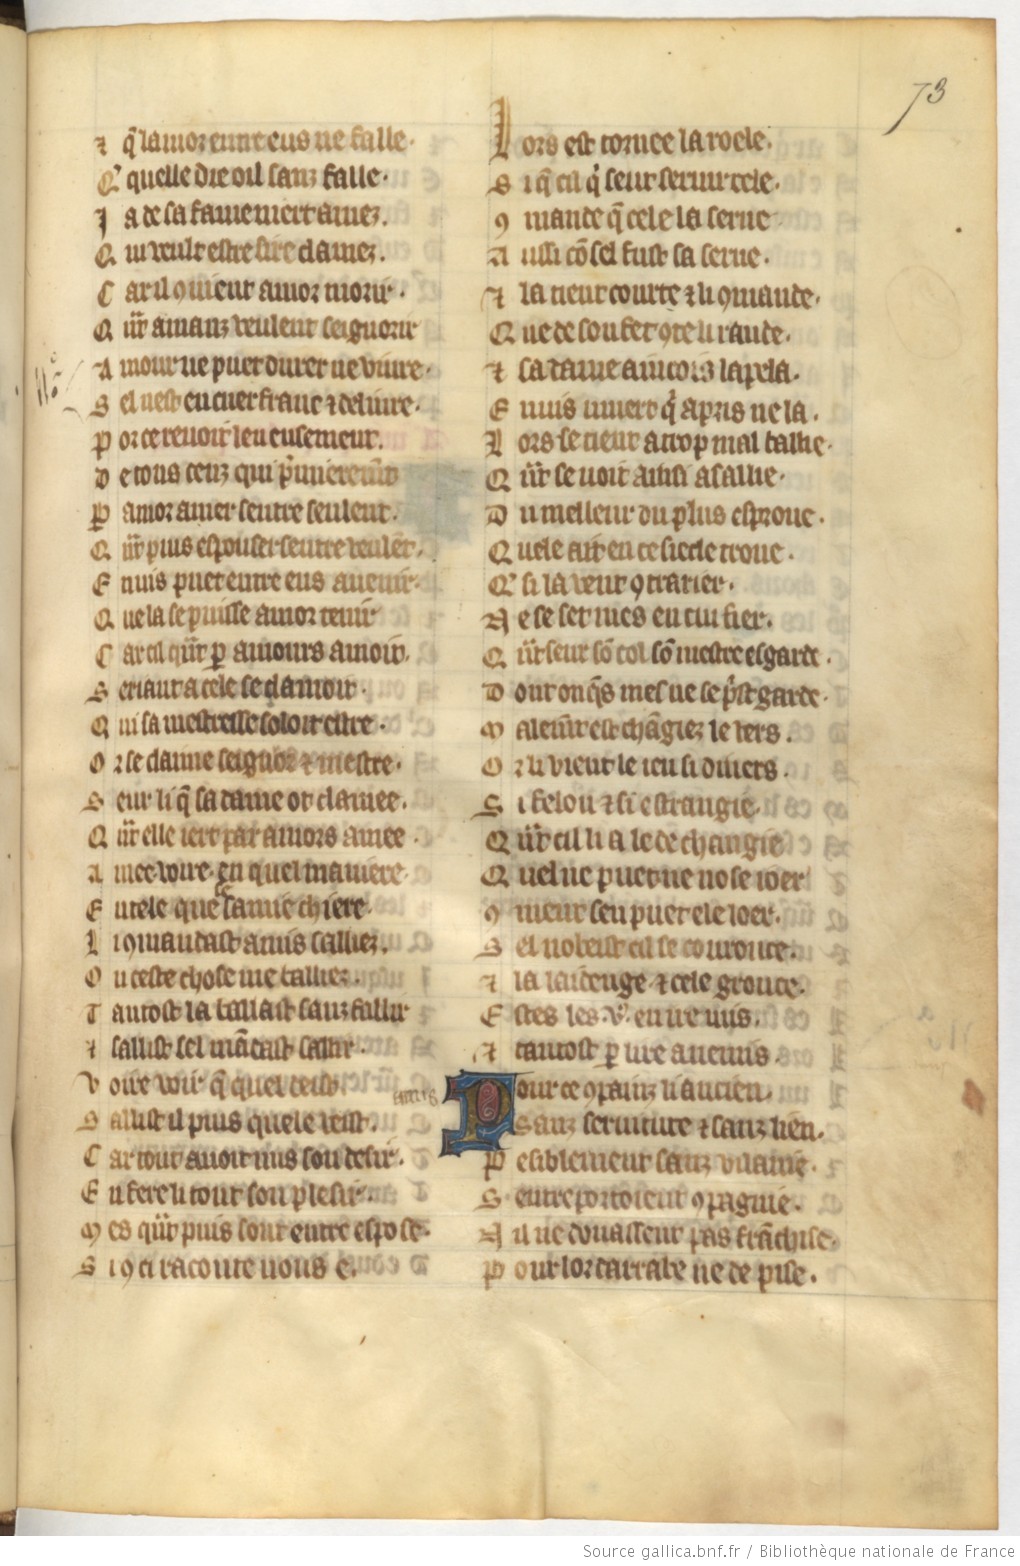 73
⁊ q̃ lamor entreus ne falle.
Q' quelle die oil sanz falle.
J a de sa fame niert amez.
Q ui veult estre sire clamez.
C ar il 9uient amor morir.
Q ñt amanz veulent seignorir
A mour ne puet durer ne viure.
S el nest en cuer franc ⁊ deliure.
P or ce revoit len ensement.
D e tous ceuz qui
P amor amer sentre seulent.
Q ñt puis espouser sentre veulẽt.
E nuis puet entre eus auenir.
Q ue la se puisse amor tenir
C ar cil qñt p amours amoit.
S eriant a cele se clamoit.
Q ui sa mestresse soloit estre.
O r se claime seignor ⁊ mestre.
S eur li q̃ sa dame ot clamee.
Q ñt elle iert par amors amee.
A mee voire. En quel maniere.
E n tele que samie chiere.
L i 9mandast amis sailliez.
O u ceste chose me bailliez.
T antost la baillast sanz faillir
⁊ saillist sel mãdast saillir.
V oire voir q̃ quel deist.
amis
S aillist il puis quele veist.
C ar tout auoit mis son desir.
E n fere li tout son plesir.
M es qñt puis sont entre espose.
S i 9 ci raconte vous é.
L ors est tornee la roele.
S i q̃ cil q̇ seut seruir cele.
9 mande q̃ cele le serue
A ussi cõ sel fust sa serue.
⁊ la tient courte ⁊ li 9mande.
Q ue de son fet 9te li rande.
⁊ sa dame aincois lapela.
E nuis muert q̇ apris ne la.
L ors se tient a trop mal baillie.
Q ñt se voit ainsi asaillie.
D u meilleur du plus esprouc.
Q uele ait en ce siecle trouc.
Q' si la veut 9trarier.
N e se set mes en cui fier.
Q ñt seur sõ col sõ mestre esgarde.
D ont onq̃s mes ne se p̃st garde.
M alemẽt est chãgiez le vers.
O r li vient le ieu si diuers.
S i felon ⁊ si estrangie.
Q ñt cil li a le de changie
Q uel ne puet ne nose ioer
9 ment sen puet ele loer.
S el nobeist cil se courouce.
⁊ la laidenge ⁊ cele grouce.
E stes les vˢ en ire mis.
⁊ tantost p lire anemis.
Pour ce 9painz li ancien.
Sanz seruitute ⁊ sanz lien.
P esiblement sanz vilanie.
S entreportoient 9pagnie.
N il ne donassent pas frãchise.
P our lor darrabe ne de pise.
Source gallica.bnf.fr / Bibliothèque nationale de France